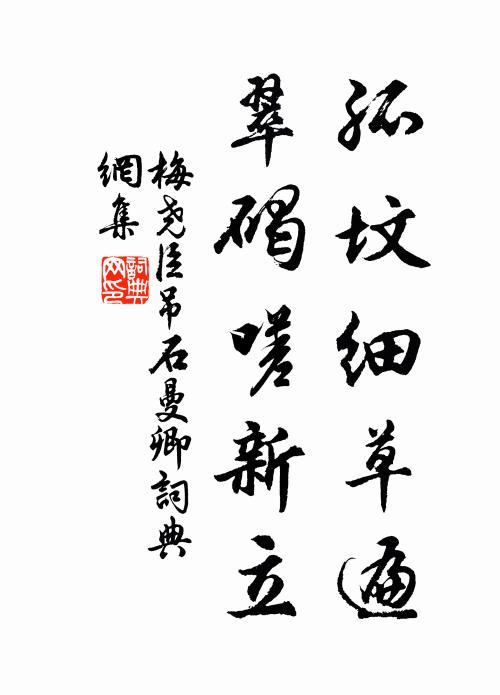 孤坟细草遍
翠碣嗟新立
梅尧臣吊石曼卿詞典
網集
詞典
网印